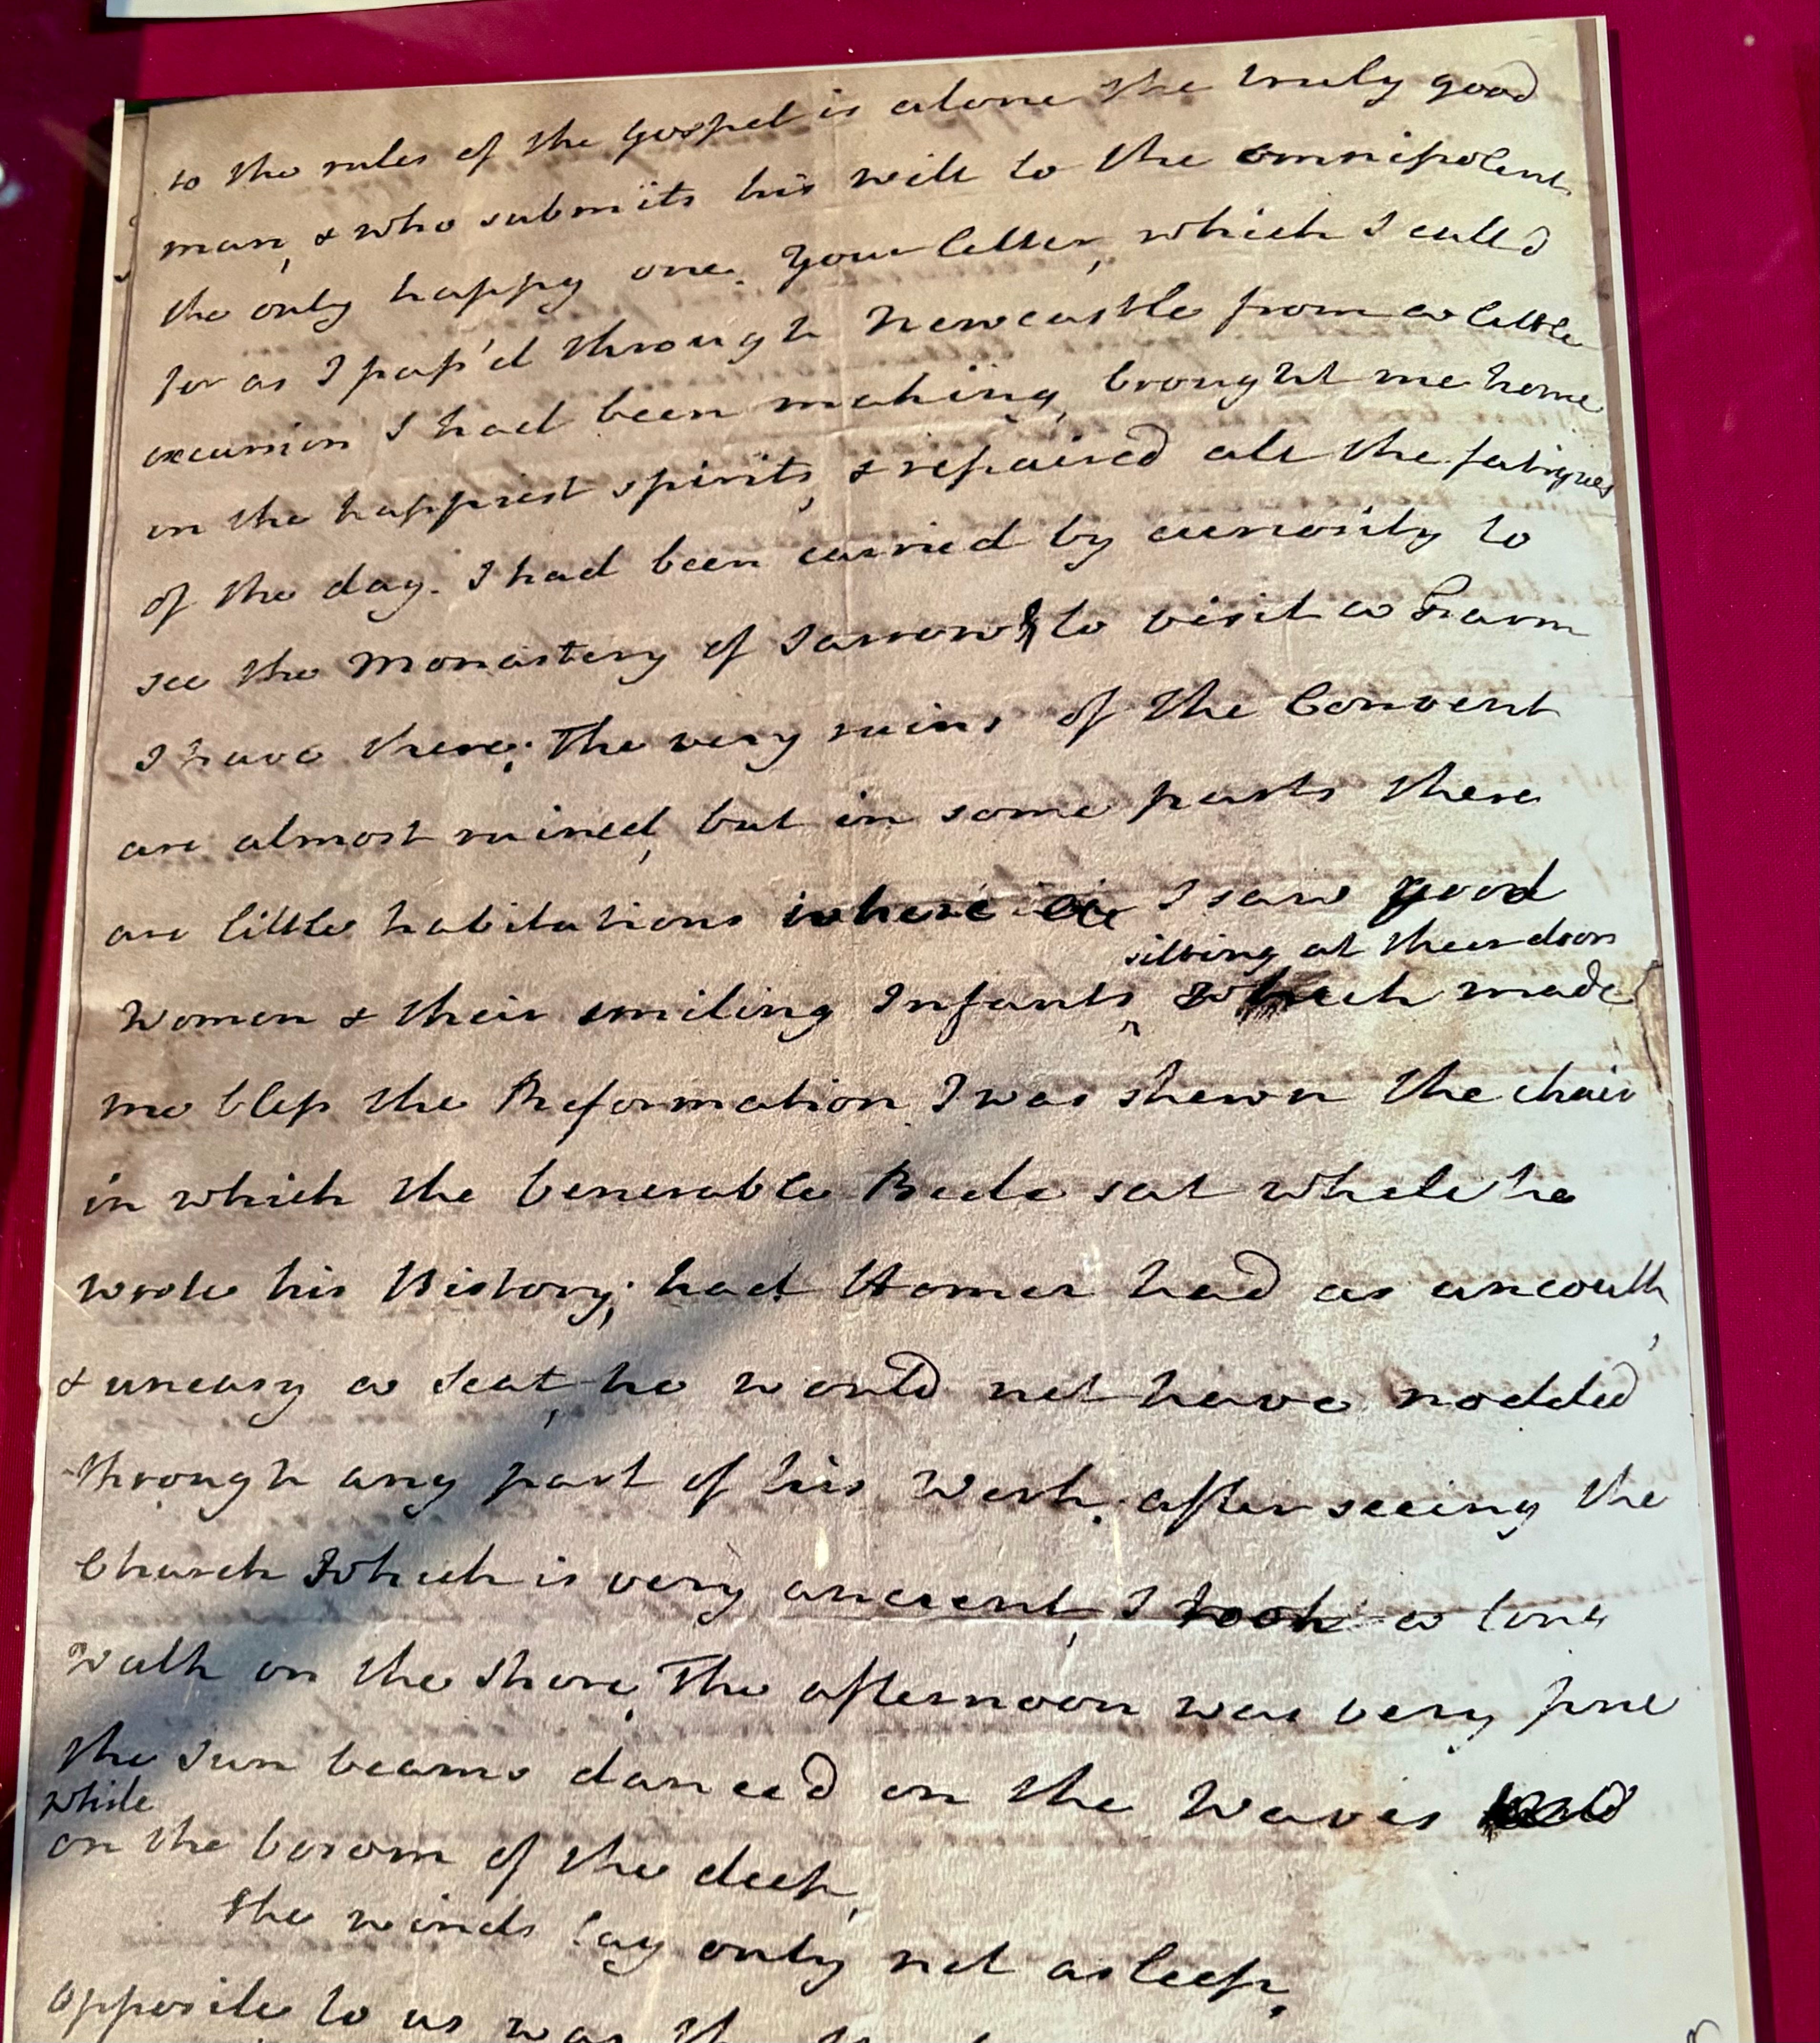 to the rules of the Gospel is alone the truly good
man, & who submits his will to the omnipotent
the only happy one. Your letter, which I call'd
for as I pass'd through Newcastle from a little
excursion I had been making, brought me home
in the happiest spirits, & repaired all the fatigues
of the day. I had been carried by curiosity to
see the Monastery of Jarrow & to visit a Farm
I have there; The very ruins of the Convent
are almost ruined, but in some parts there
are little habitations where I saw good
sitting at their doors
Women & their smiling Infants, which made
me bless the Reformation I was shewn the chair
in which the venerable Bede sat while he
wrote his History; had Homer had as uncouth,
& uneasy a Seat, he would not have nodded
through any part of his Work. after seeing the
Church which is very ancient, I took a long
walk on the Shore, The afternoon was very fine
the Sun beams danced on the Waves
while
on the bosom of the deep,
the winds lay only not asleep.
opposite to us was